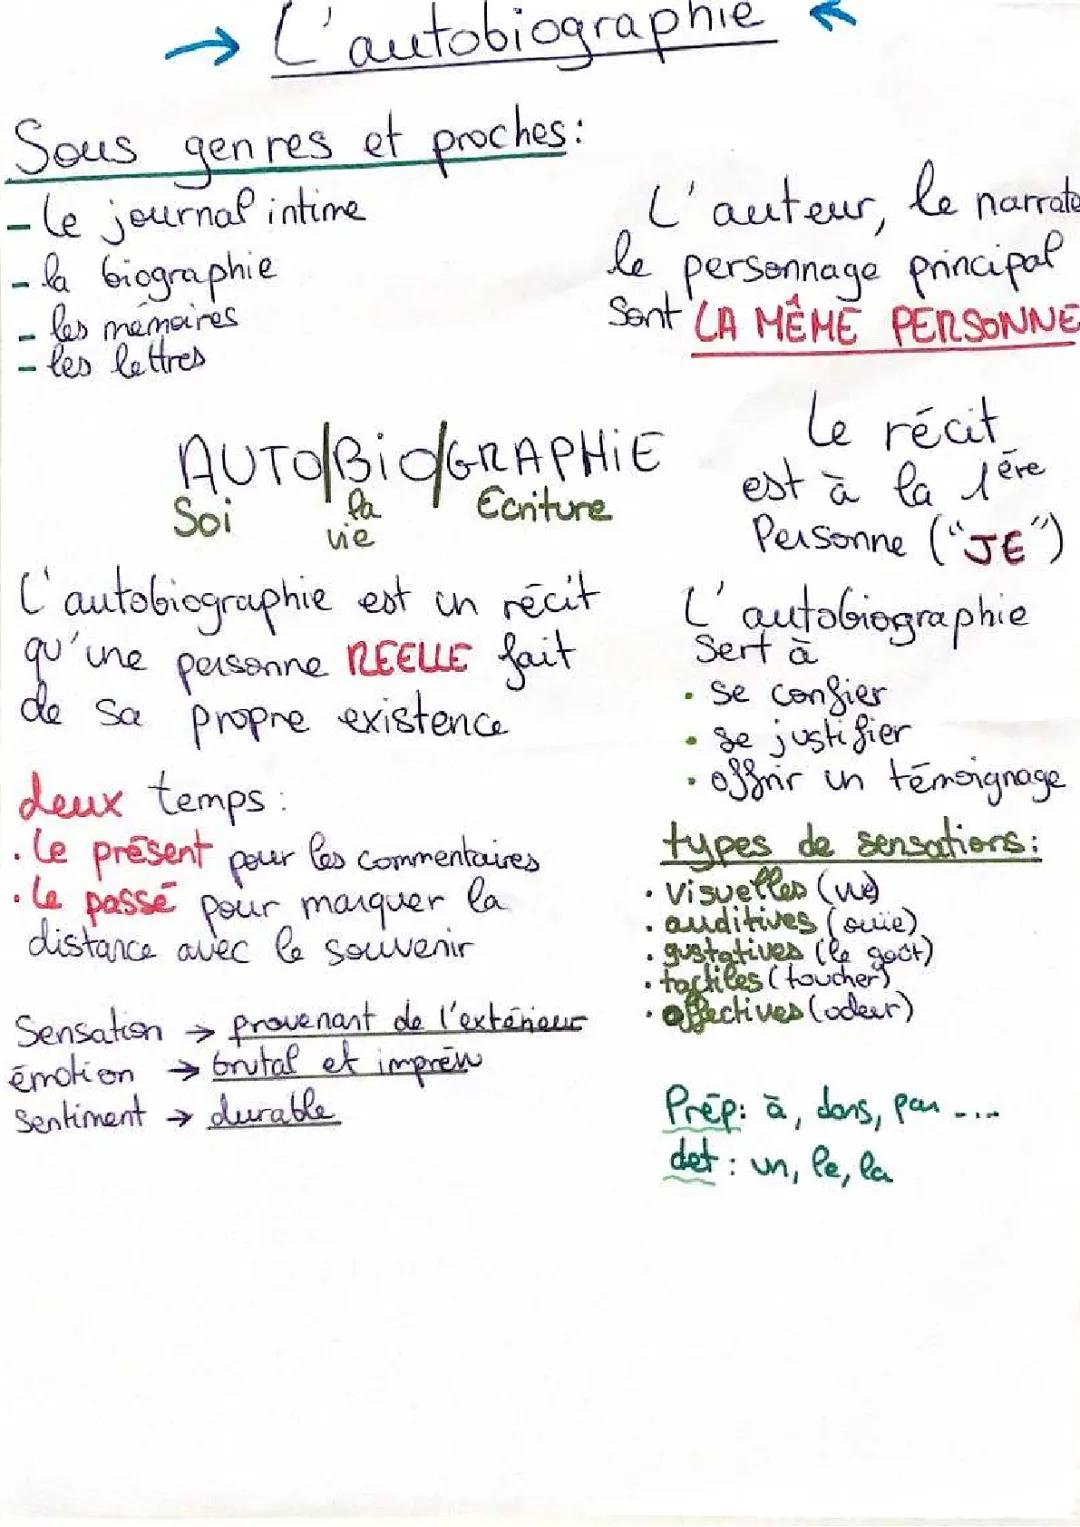 → L'autobiographie ←
Sous genres et proches:
- le journal intime
- la biographie
- les mémoires
- les lettres
L'auteur, le narrate
le personnage principal
sont LA MÊME PERSONNE
AUTO/BiO/GRAPHiE
Soi la vie Ecriture
Le récit
est à la 1ère
Personne ("JE")
L'autobiographie est un récit
qu'une personne REELLE fait
de sa propre existence
L'autobiographie
sert à
• se confier
• se justifier
• offrir un témoignage
deux temps:
• le présent pour les commentaires
• le passé pour marquer la
distance avec le souvenir
types de sensations:
• visuelles (vue)
• auditives (ouïe)
• gustatives (le goût)
• tactiles (toucher)
• offectives (odeur)
Sensation → provenant de l'extérieur
émotion → brutal et imprév
sentiment → durable
Prép: à, dans, par ....
det: un, le, la